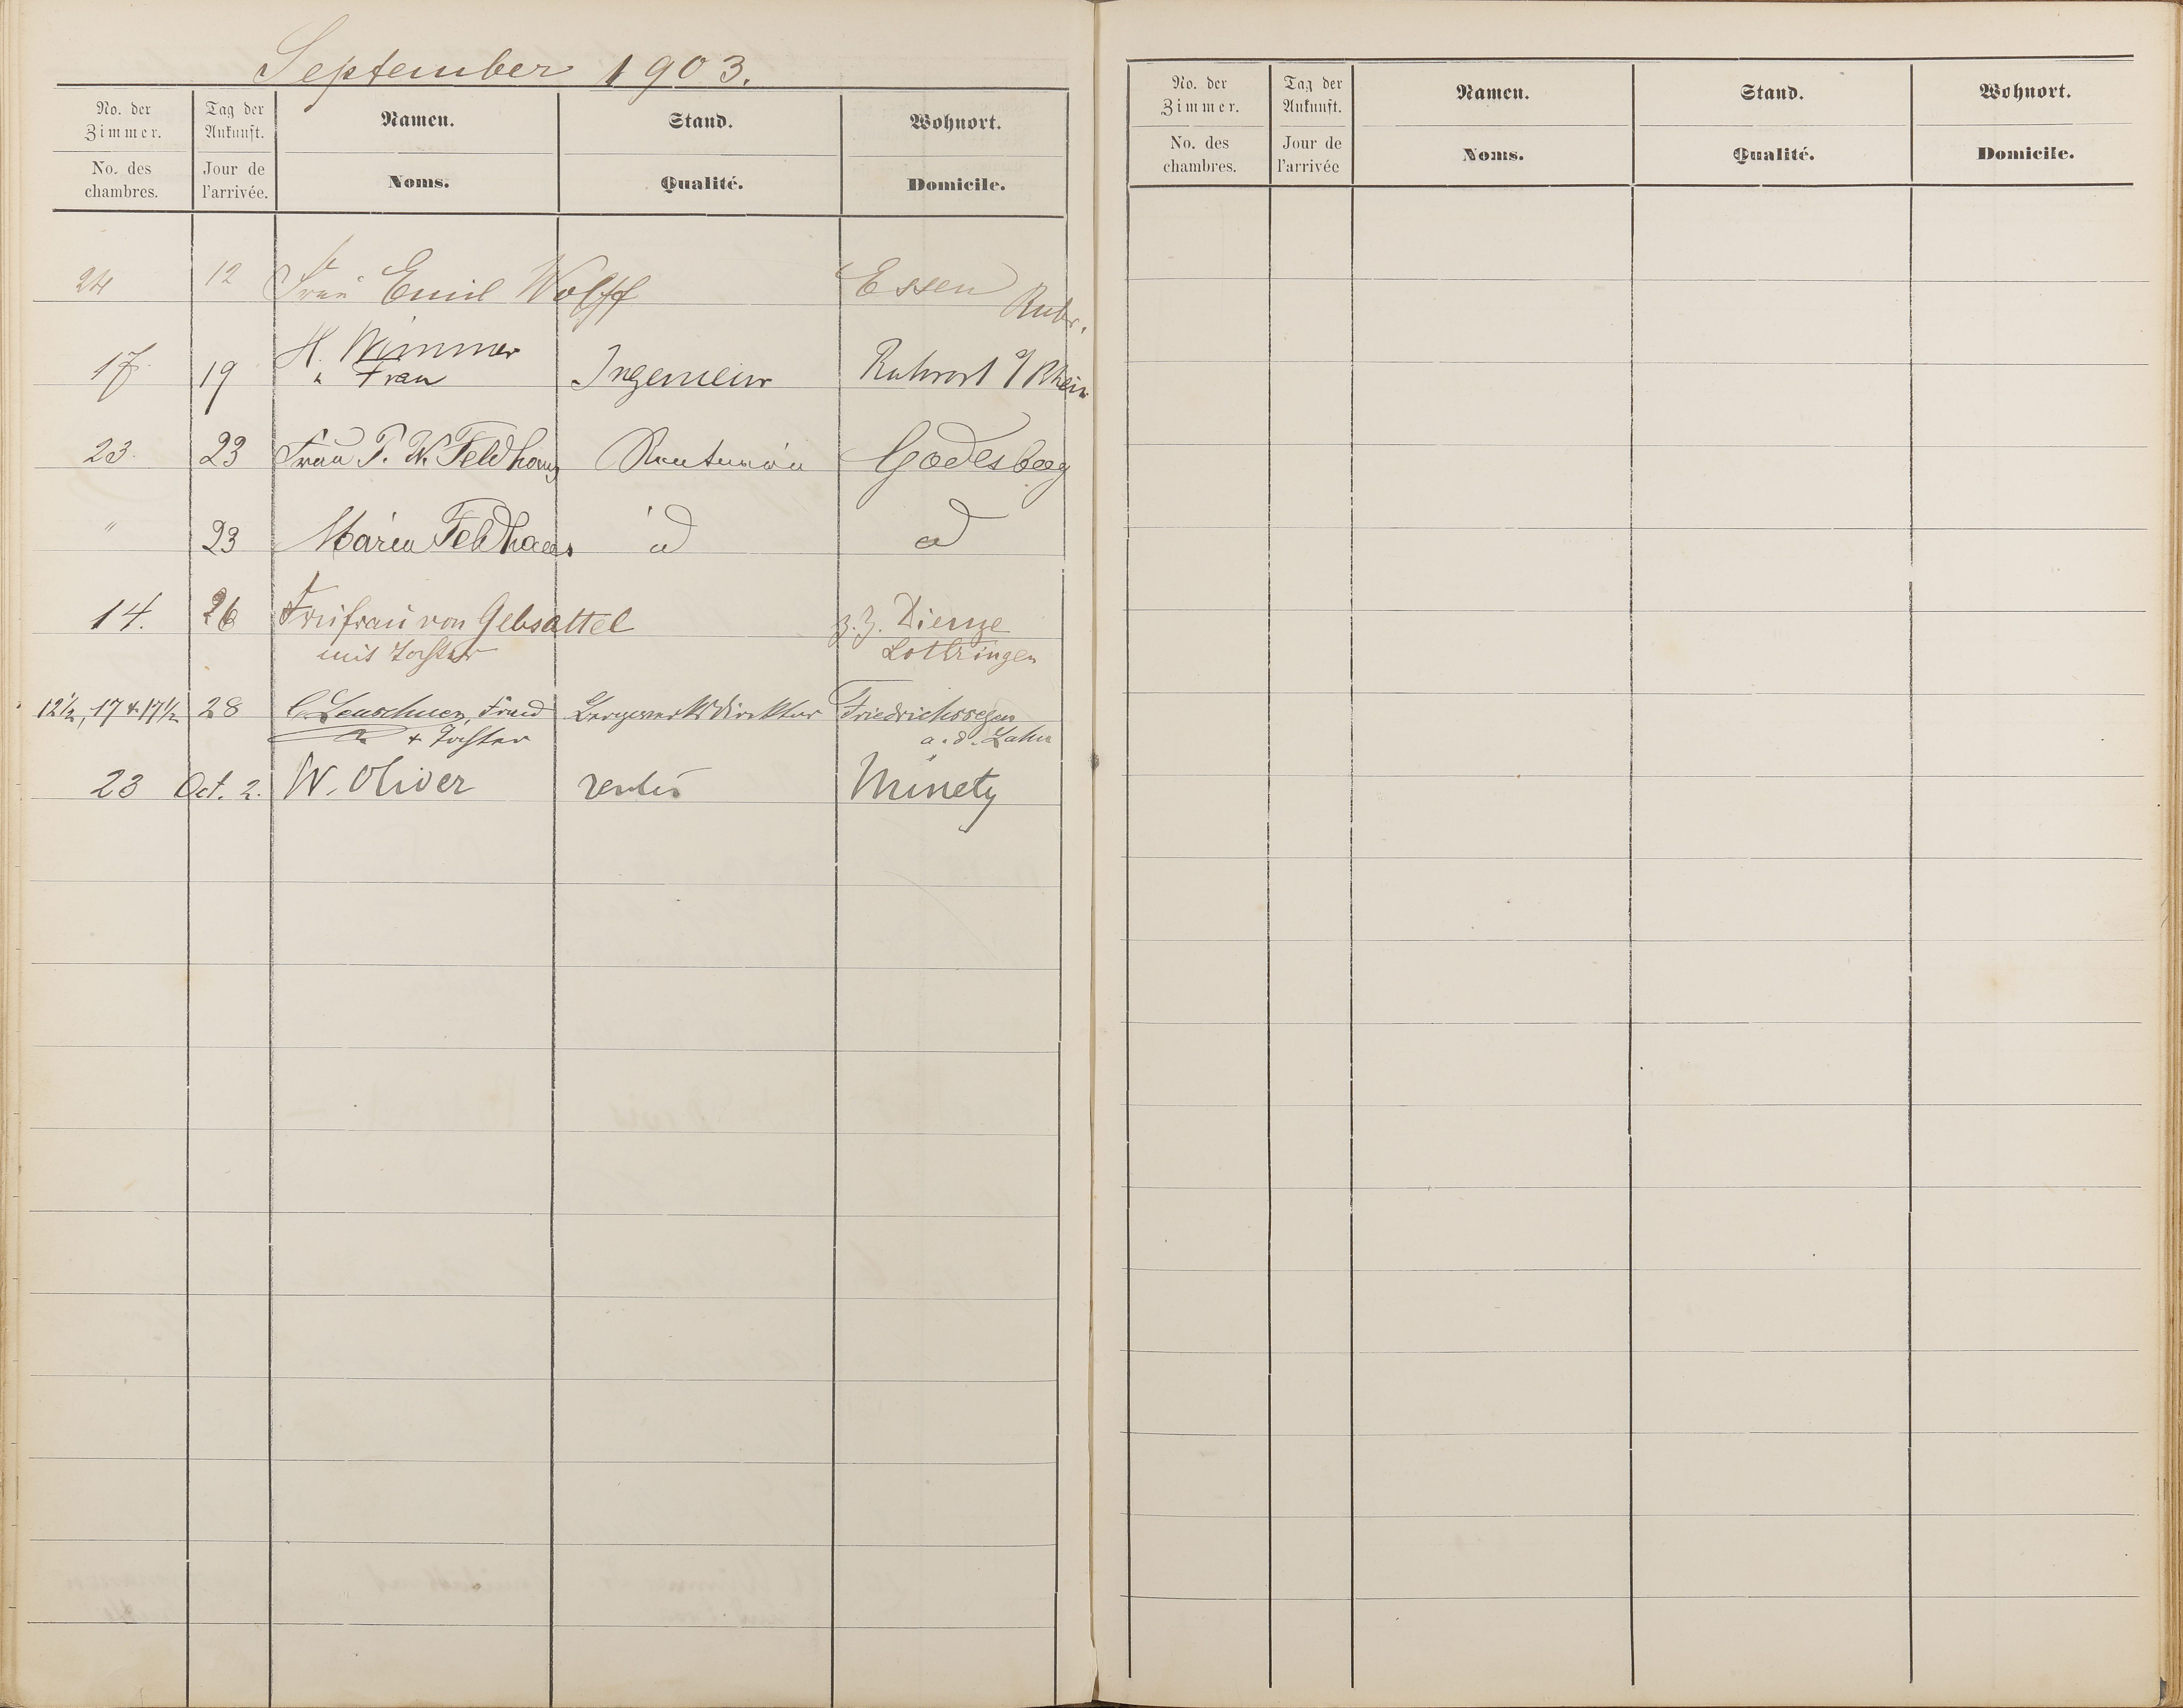 September 1903.
No. der Zimmer. Tag der Ankunft. Namen. Stand. Wohnort.
No. des chambres. Jour de l'arrivée. Noms. Qualité. Domicile.
24 12 Frau Emil Wolff Essen Ruhr.
17. 19 H. Wimmer Ingenieur Ruhrort a/Rhein
u Frau
23. 23 Frau P. W. Feldhaus Rentnerin Godesberg
" 23 Maria Feldhaus id id
14. 26 Freifrau von Gebsattel z. Z. Dieuze
mit Tochter Lothringen
12½, 17 + 17½ 28 C. Leuschner, Frau Bergwerksdirektor Friedrichssegen
+ Tochter a. d. Lahn
23 Oct. 2. W. Oliver Minety
No. der Zimmer. Tag der Ankunft. Namen. Stand. Wohnort.
No. des chambres. Jour de l'arrivée Noms. Qualité. Domicile.